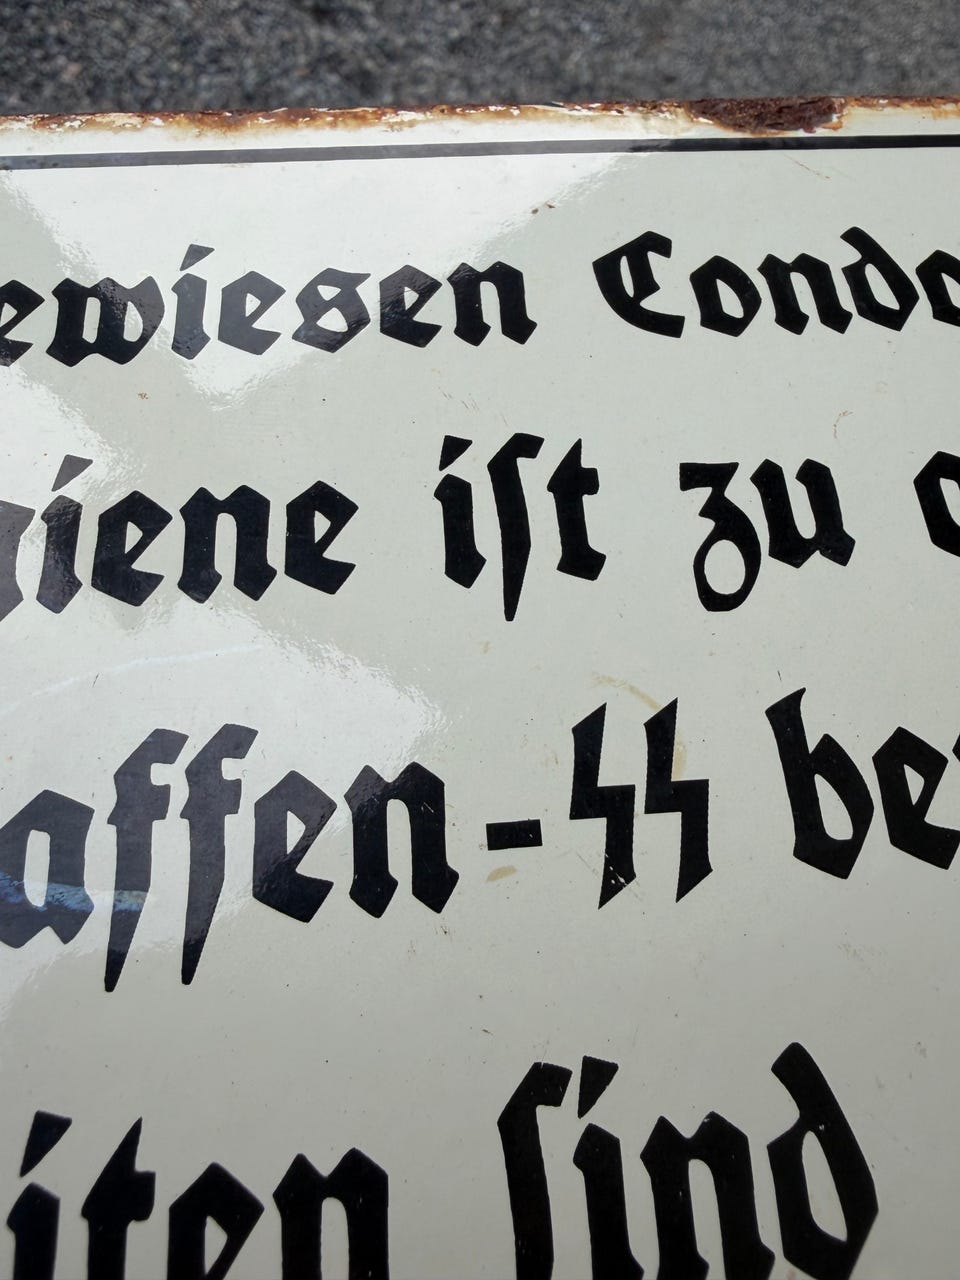 ewiesen Condo
giene ist zu
affen-SS be
iten sind